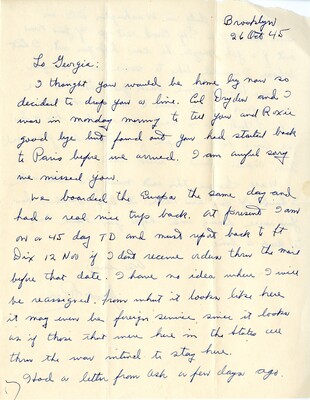 Brooklyn
26 Oct 45
Lo Georgia:
I thought you would be home by now so
decided to drop you a line. Col Dryden and I
was in monday morning to tell you and Roxie
good bye but found out you had started back
to Paris before we arrived. I am awful sorry
we missed you.
We boarded the Europa the same day and
had a real nice trip back. At present I am
on a 45 day TD and must report back to Ft
Dix 12 Nov if I dont receive orders thru the mail
before that date. I have no idea where I will
be reassigned. From what it looks like here
it may even be foreign service. since it looks
as if those that were here in the States all
thru the war intend to stay here.
Had a letter from Ask a few days ago.